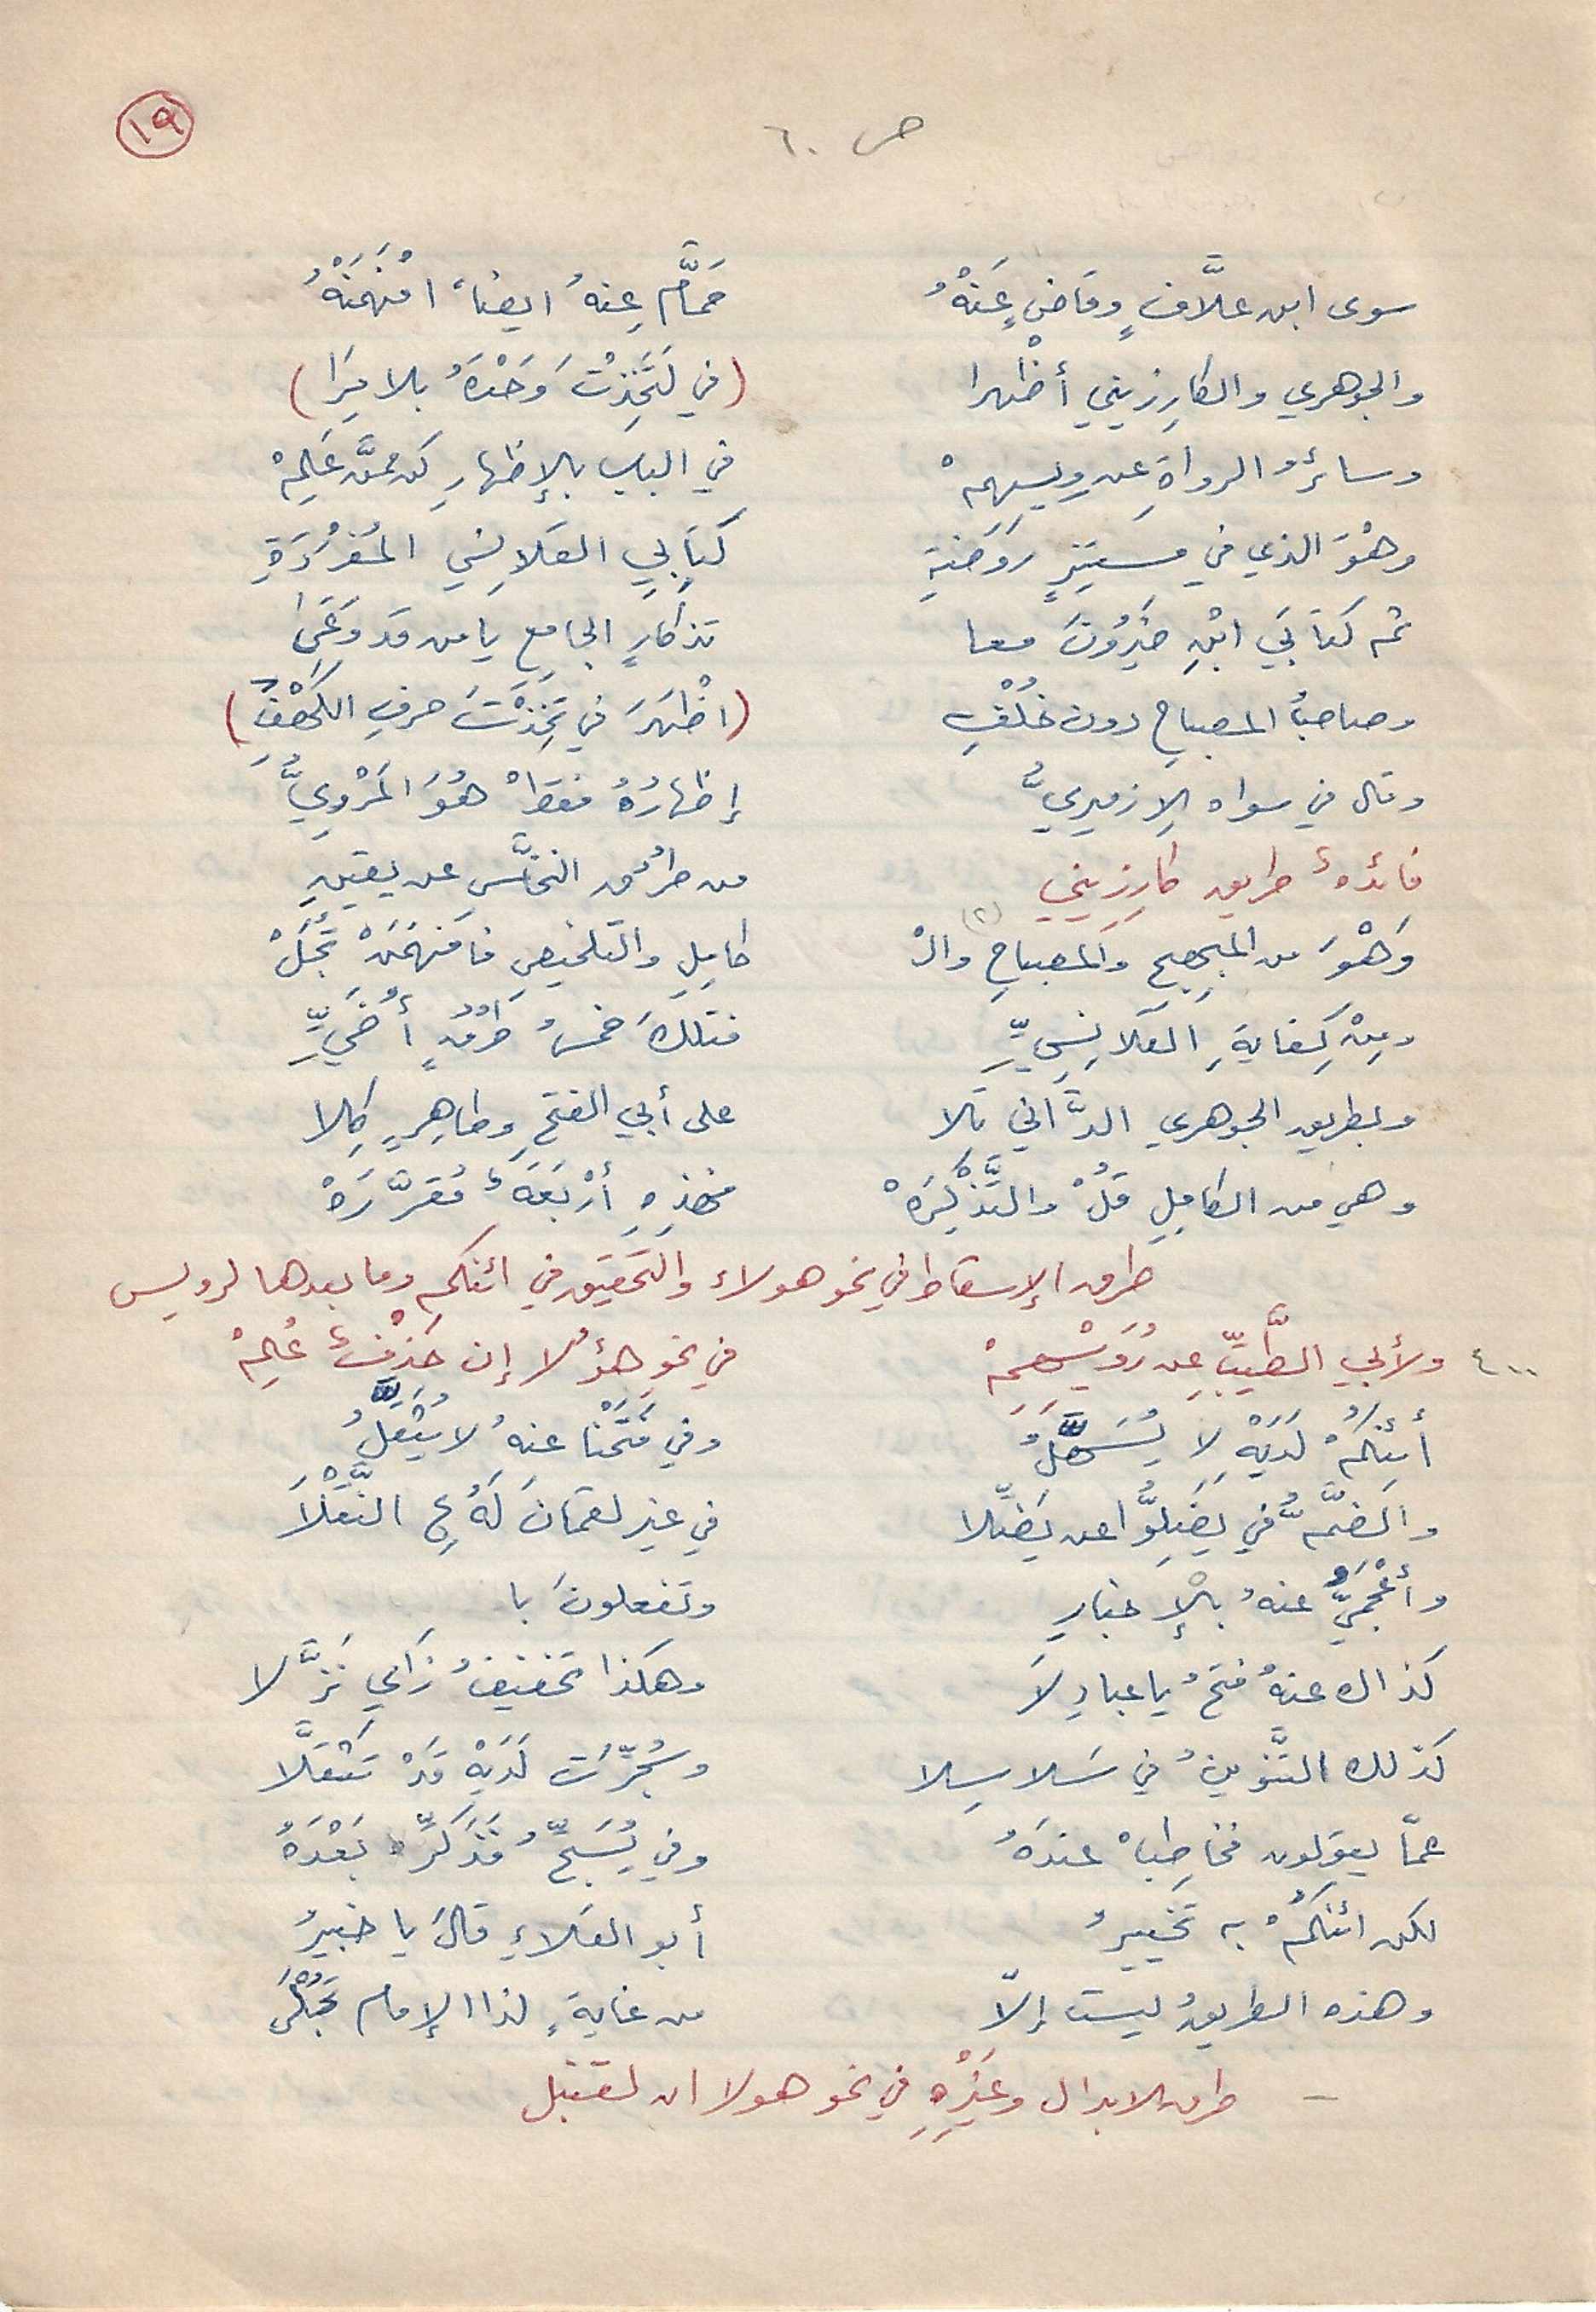 ١٩
ص ٦٠
سوى ابن علَّافٍ وقاضٍ عَنْهُ حمَّامٍ عنهُ ايضاً افْهَمَنْهُ
والجوهري والكارِزيني أظْهرا (في لَتَّخِذْتَ وَحْدَهُ بلا مِرَا)
وسائرُ الرواةِ عن رويسهمْ في البابِ بالإظهارِ كن ممَّن عَلِمْ
وهْوَ الذي في مستنيرٍ رَوضَةِ كتابي القلانِسي المُفْرَدَةِ
ثم كتابَي ابْنِ خَيْرُونَ معا تذكارٍ الجامعِ يا من قد وَعَى
وصاحبُ المصباحِ دون خُلْفِ (اظْهَرَ في تَّخِذْتَ حرفِ الكَهْفِ)
وقال في سواه الازميريُّ إظهارُهُ فقطْ هُوَ المَرْوِيُّ
فائدةٌ طريق كارِزيني من طرُقِ النخَّاسِ عن يقينِ
وَهْوَ من المبهجِ والمصباحِ (٢) والْ كامِلِ والتلخيصِ فافهمَنْ تُجَلْ
ومِنْ كِفايةِ القلانِسيِّ فتلكَ خمسُ طُرْقٍ أُخَيِّ
وبطريق الجوهري الدَّاني تلا على أبي الفتحِ وطاهِرٍ كِلا
وهي من الكامِلِ قُلْ والتَّذْكِرَهْ فهذِهِ أرْبَعَةٌ مُقَرَّرَهْ
طرق الإسقاط في نحو هولاء والتحقيق في ائنكم وما بعدها لرويس
٤٠٠ ولأبي الطَّيِّبِ عن رُوَيْسهمْ في نحوِ هؤُلا إن حَذْفٌ عُلِمْ
أئنكُمْ لَدَيْهِ لا يُسَهَّلُ وفي فَتَحْنا عنهُ لا يُثَقَّلُ
والضمُّ في يَضِلُّوا عن يَضِلَّا في غير لقمانَ لَهُ ع النَّقْلَا
وأعْجَمِيٌّ عنهُ بالْإخبارِ وتفعلونَ با
كذاك عنهُ فتحُ يا عبادِ لَا وهكذا تخفيفُ زَايِ نَزَّلا
كذلك التَّنْوينُ في سَلاسِلا وسُجِّرَت لَدَيْهِ قَدْ تَثَقَّلَا
عمّا يقولون فخاطِبْ عندَهُ وفي يُسَبِّحُ فَذَكِّرْ بَعْدَهُ
لكن ائنكُمْ به تخييرُ أبو العَلاءِ قالَ يا خبيرُ
وهذه الطريقُ ليست إلّا من غايةٍ لذا الإمام تُجْلَى
– طرق الابدال وغَيْرِهِ في نحو هولا ان لقنبل